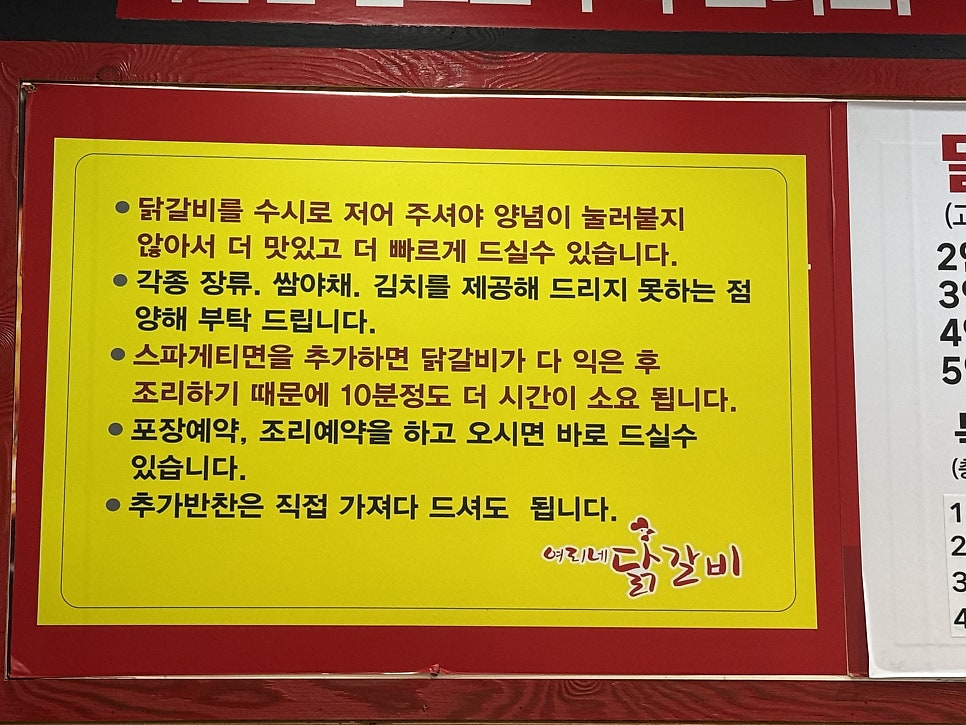 ● 닭갈비를 수시로 저어 주셔야 양념이 눌러붙지
않아서 더 맛있고 더 빠르게 드실수 있습니다.
● 각종 장류. 쌈야채. 김치를 제공해 드리지 못하는 점
양해 부탁 드립니다.
● 스파게티면을 추가하면 닭갈비가 다 익은 후
조리하기 때문에 10분정도 더 시간이 소요 됩니다.
● 포장예약, 조리예약을 하고 오시면 바로 드실수
있습니다.
● 추가반찬은 직접 가져다 드셔도 됩니다.
여리네 닭갈비
2
3
4
5
1
2
3
4